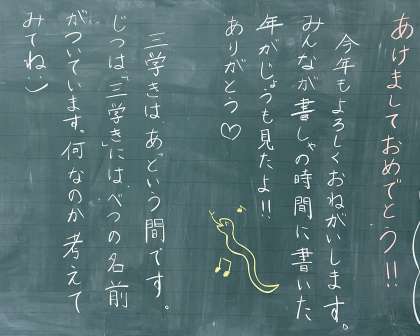 あけましておめでとう!!
今年もよろしくおねがいします。
みんなが書しゃの時間に書いた
年がじょうも見たよ!!
ありがとう♡
三学きは、あっという間です。
じつは「三学き」には、べつの名前
がついています。何なのか考えて
みてね:)